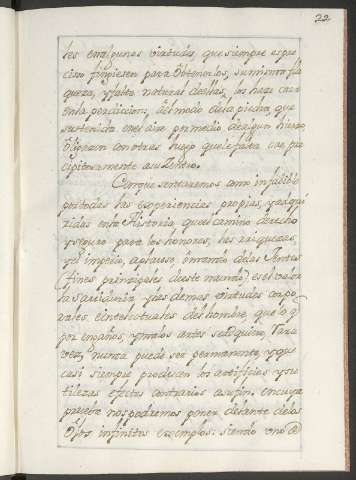 22
les en algunas virtudes, que siempre es pre
ciso finjiesen para obtenerlos, su misma fla
queza, y falta natural de ellas, los hace caer
en la perdicion; del modo de la piedra, que
sustenida en el aire por medio de algun hierro
que le falta cae pre
cipitosamente a su Centro.
Con que sentaremos como infalible
por todas las experiencias propias, y adqui
ridas en la Historia que el camino derecho
y seguro para los honores, las riquezas,
y el imperio, aplauso, de las Gentes
(fines principales de este mundo) es el valor
la Saviduria, y las demas virtudes corpo
rales, e intelectuales del hombre, que lo q.e
por engaños, y malos artes se adquiere, rara
vez, o nunca puede ser permanente, y que
casi siempre producen los artificios y su
tilezas efectos contrarios a su fin, en cuya
prueba nos podremos poner delante de los
Ojos infinitos exemplos: siendo uno de